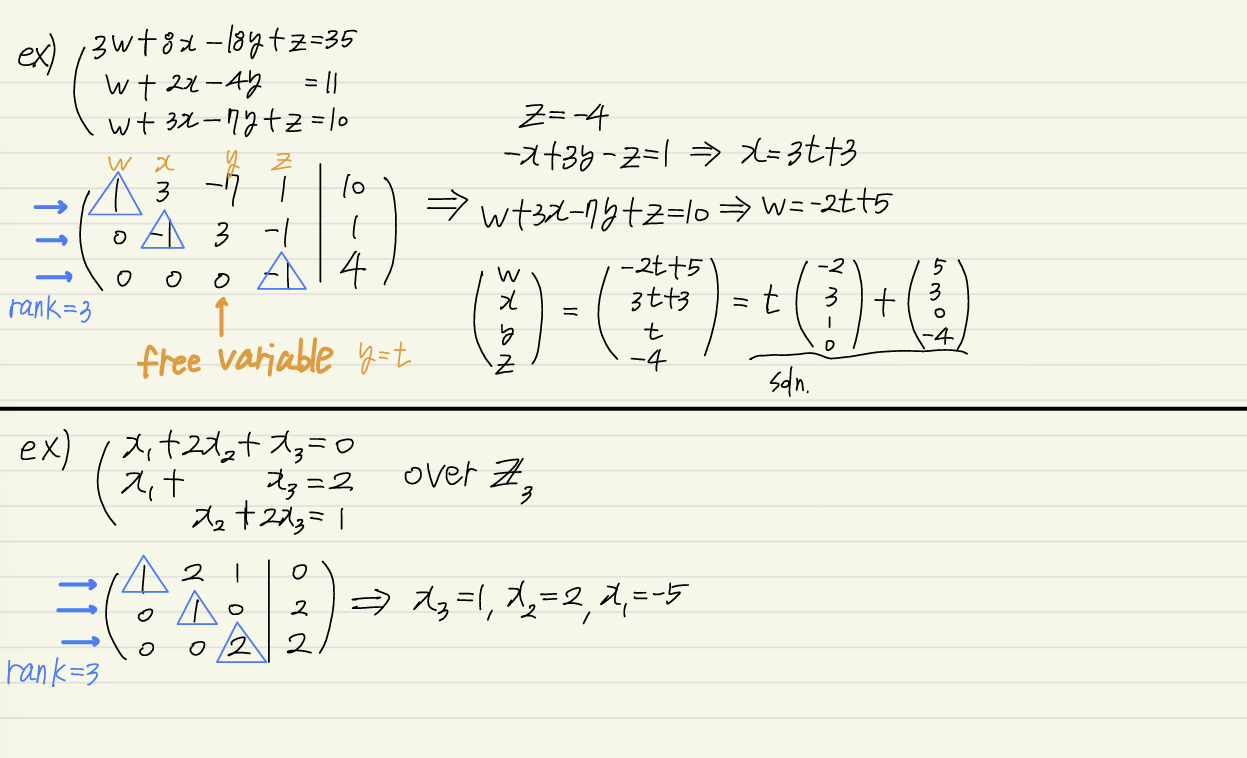 ex) 3w+8x-18y+z=35
w+2x-4y =11
w+3x-7y+z=10
w x y z
1 3 -7 1 | 10
0 -1 3 -1 | 1
0 0 0 -1 | 4
rank=3
free variable y=t
⇒ z=-4
-x+3y-z=1 ⇒ x=3t+3
w+3x-7y+z=10 ⇒ w=-2t+5
(w x y z) = (-2t+5 3t+3 t -4) = t (-2 3 1 0) + (5 3 0 -4)
soln.
ex) x₁+2x₂+x₃=0
x₁+ x₃=2 over ℤ₃
x₂+2x₃=1
1 2 1 | 0
0 1 0 | 2
0 0 2 | 2
⇒ x₃=1, x₂=2, x₁=-5
rank=3